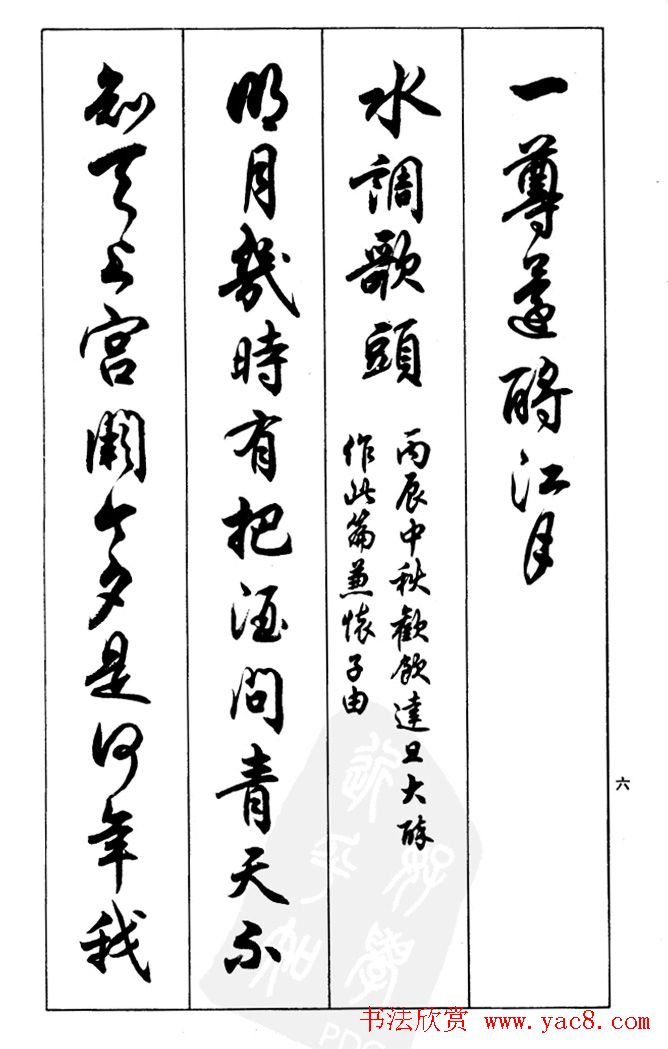 一尊還酹江月
水調歌頭
丙辰中秋歡飲達旦大醉
作此篇兼懷子由
明月幾時有把酒問青天不
知天上宮闕今夕是何年我
六
书法欣赏 www.yac8.com